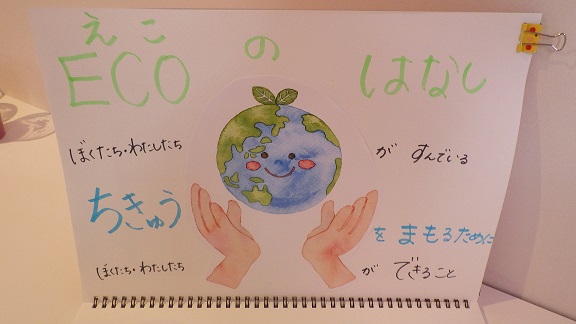 えこ
ECOのはなし
ぼくたち・わたしたちがすんでいる
ちきゅうをまもるために
ぼくたち・わたしたちができること